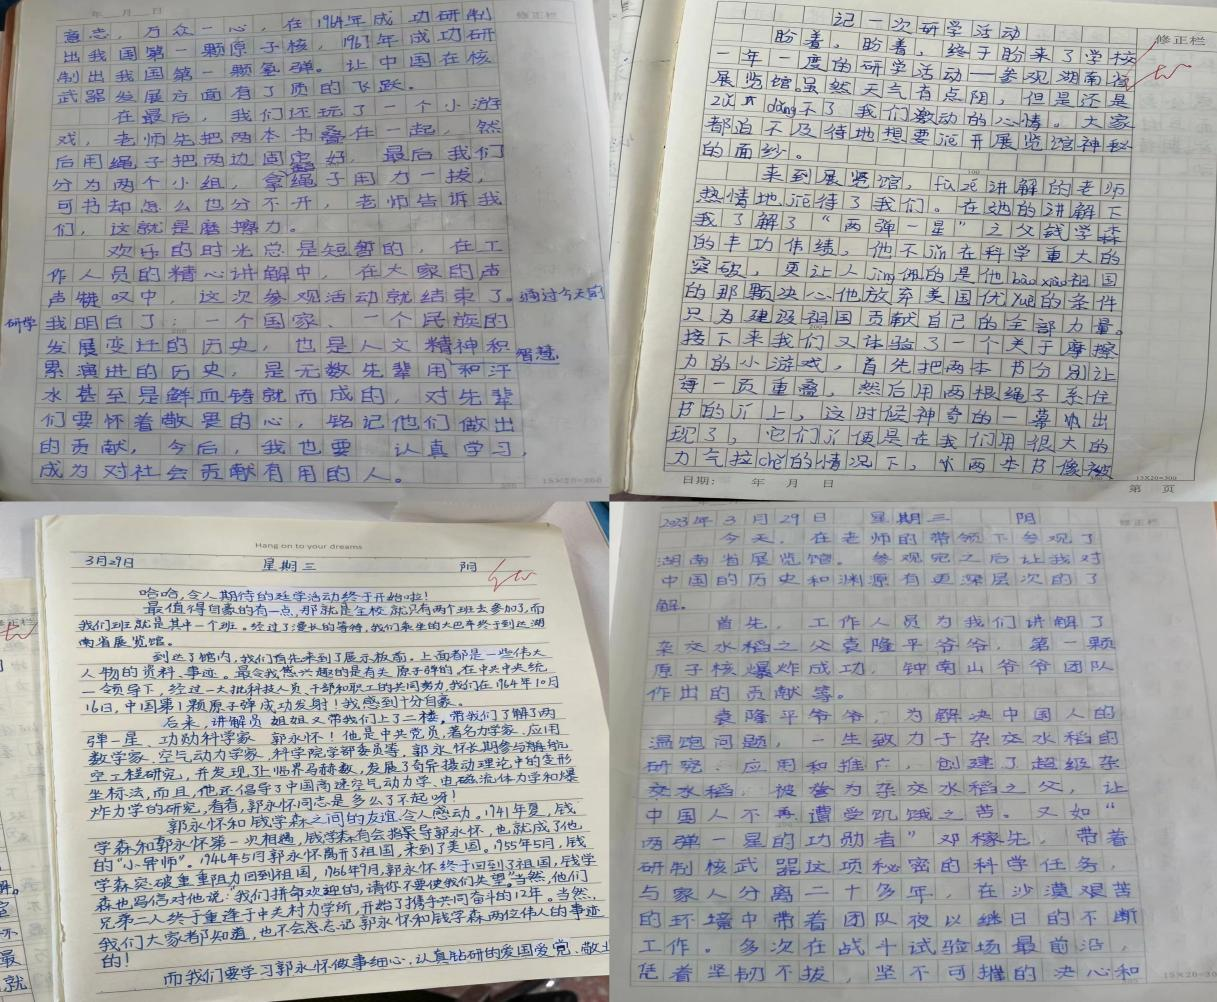 年 月 日
修正栏
意志，万众一心，在1964年成功研制
出我国第一颗原子核，1967年成功研
制出我国第一颗氢弹。让中国在核
武器发展方面有了质的飞跃。
在最后，我们还玩了一个小游
戏，老师先把两本书叠在一起，然
后用绳子把两边固定好，最后我们
分为两个小组，拿绳子用力一拔，
可书却怎么也分不开，老师告诉我
们，这就是磨擦力。
欢乐的时光总是短暂的，在工
作人员的精心讲解中，在大家的声
声惊叹中，这次参观活动就结束了。通过今天的
研学
我明白了：一个国家、一个民族的
发展变迁的历史，也是人文精神积
智慧
累演进的历史，是无数先辈用和汗
水甚至是鲜血铸就而成的，对先辈
们要怀着敬畏的心，铭记他们做出
的贡献，今后，我也要 认真学习，
成为对社会贡献有用的人。
15X20=300
记一次研学活动
修正栏
盼着，盼着，终于盼来了学校
一年一度的研学活动——参观湖南省
展览馆。虽然天气有点阴，但是还是
dǎng不了我们激动的心情。大家
都迫不及待地想要jiē开展览馆神秘
的面纱。
来到展览馆，fù zé讲解的老师
热情地jiē待了我们。在她的讲解下
我了解了“两弹一星”之父钱学森
的丰功伟绩，他不jǐn在科学重大的
突破，更让人jìng佩的是他bào xiào祖国
的那颗决心他放弃美国优yuè的条件
只为建设祖国贡献自己的全部力量。
接下来我们又体验了一个关于摩擦
力的小游戏，首先把两本书分别让
每一页重叠，然后用两根绳子系住
书的 上，这时候神奇的一幕 出
现了，它们 便是在我们用很大的
力气拉chě的情况下， 两本书像被
日期： 年 月 日
15X20=300
第 页
Hang on to your dreams
3月29日 星期三 阴
哈哈，令人期待的研学活动终于开始啦！
最值得自豪的有一点，那就是全校就只有两个班去参加了，而
我们班就是其中一个班。经过了漫长的等待，我们乘坐的大巴车终于到达湖
南省展览馆。
到达了馆内，我们首先来到了展示板前。上面都是一些伟大
人物的资料、事迹。最令我感兴趣的是有关原子弹的。在中共中央统
一领导下，经过一大批科技人员、干部和职工的共同努力，我们在1964年10月
16日，中国第1颗原子弹成功发射！我感到十分自豪。
后来，讲解员姐姐又带我们上了二楼。带我们了解了两
弹一星、功勋科学家 郭永怀！他是中共党员，著名力学家、应用
数学家、空气动力学家，科学院学部委员等，郭永怀长期参与航
空工程研究，并发现了上临界马赫数，发展了奇异摄动理论中的变形
坐标法，而且，他还倡导了中国高速空气动力学、电磁流体力学和爆
炸力学的研究，看看，郭永怀同志是多么了不起呀！
郭永怀和钱学森之间的友谊令人感动。1941年夏，钱
学森和郭永怀第一次相遇，钱学森有会指导郭永怀，也就成了他
的“小导师”。1946年5月郭永怀离开了祖国，来到了美国。1955年5月，钱
学森突破重重阻力回到祖国，1956年9月，郭永怀终于回到了祖国，钱学
森也写信对他说：“我们拼命欢迎的，请你不要使我们失望”。当然，他们
兄弟二人终于重逢于中关村力学所，开始了携手共同奋斗的12年。当然，
我们大家都知道，也不会忘记郭永怀和钱学森两位伟人的事迹
的！
而我们要学习郭永怀做事细心、认真钻研的爱国爱党、敬业
2023年3月29日 星期三 阴
修正栏
今天，在老师的带领下参观了
湖南省展览馆。参观完之后让我对
中国的历史和渊源有更深层次的了
解。
首先，工作人员为我们讲解了
杂交水稻之父袁隆平爷爷，第一颗
原子核爆炸成功，钟南山爷爷团队
作出的贡献等。
袁隆平爷爷，为解决中国人的
温饱问题，一生致力于杂交水稻的
研究、应用和推广，创建了超级杂
交水稻，被誉为杂交水稻之父，让
中国人不再遭受饥饿之苦。又如“
两弹一星的功勋者”邓稼先，带着
研制核武器这项秘密的科学任务，
与家人分离二十多年，在沙漠艰苦
的环境中带着团队夜以继日的不断
工作。多次在战斗试验场最前沿，
凭着坚韧不拔，坚不可摧的决心和
15X20=300